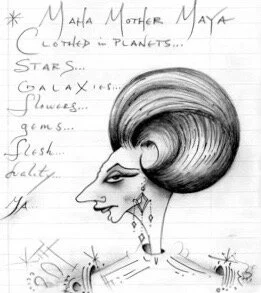 MAHA MOTHER MAYA
CLOTHED in PLANETS...
STARS...
GALAXIES...
flowers...
gems...
flesh...
duality...